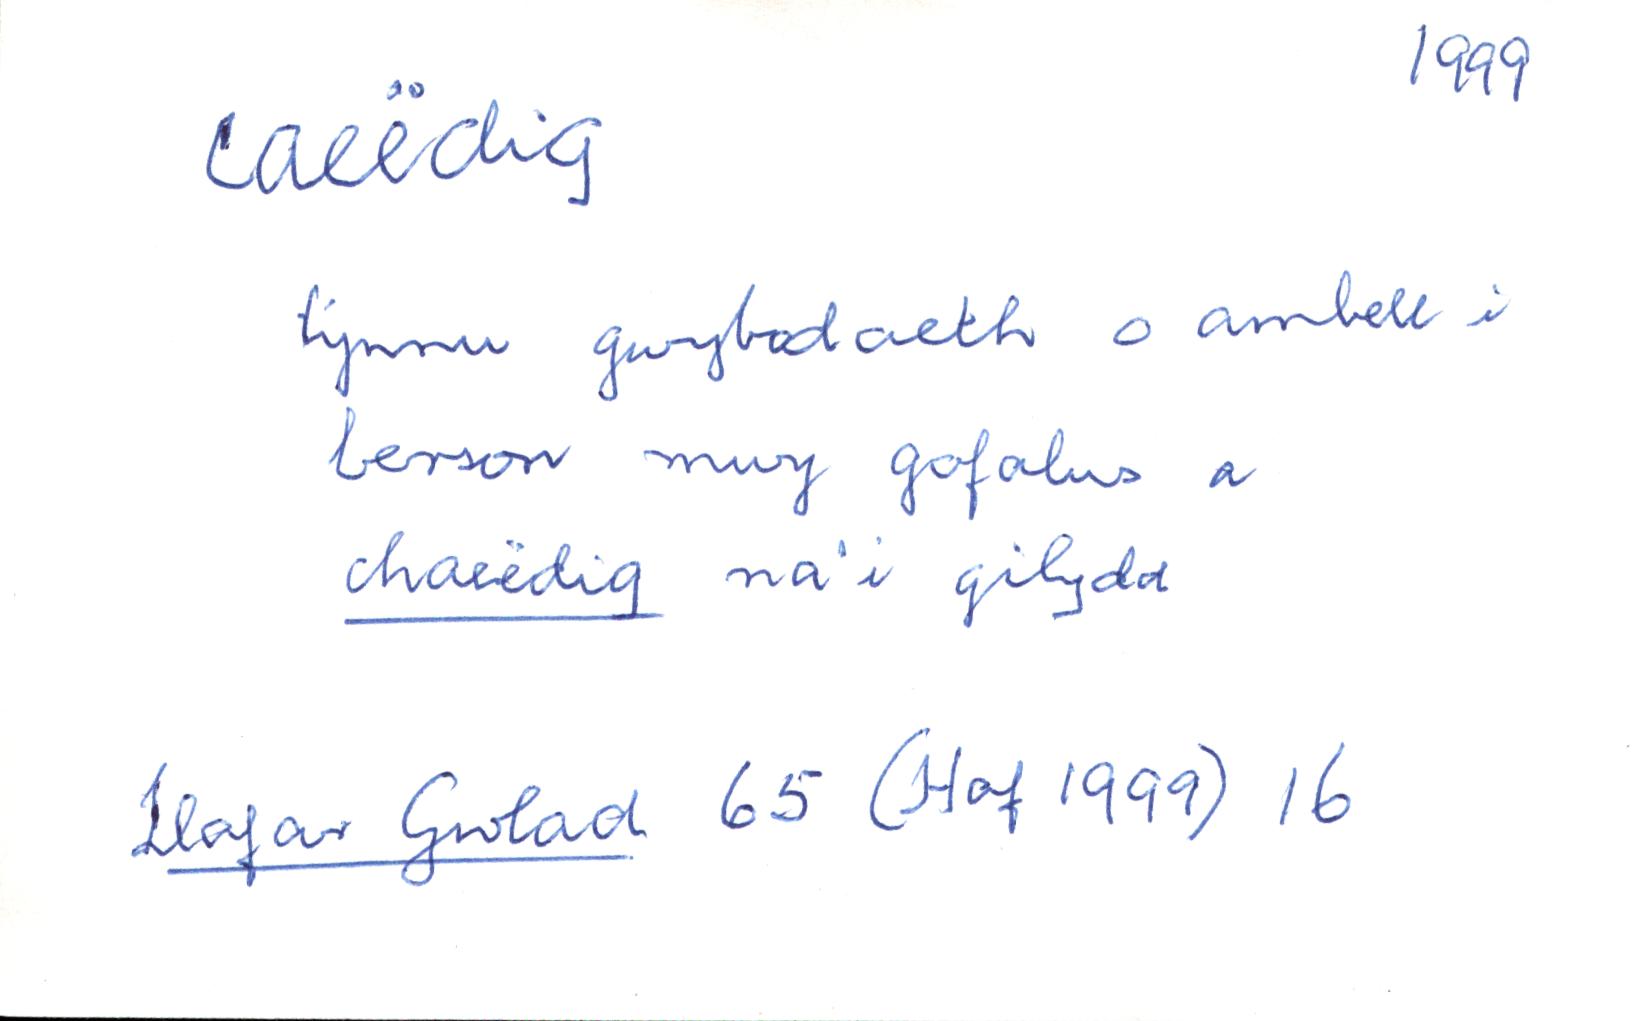 1999
caeëdig
tynnu gwybodaeth o ambell i
berson mwy gofalus a
chaeëdig na'i gilydd
Llafar Gwlad 65 (Haf 1999) 16